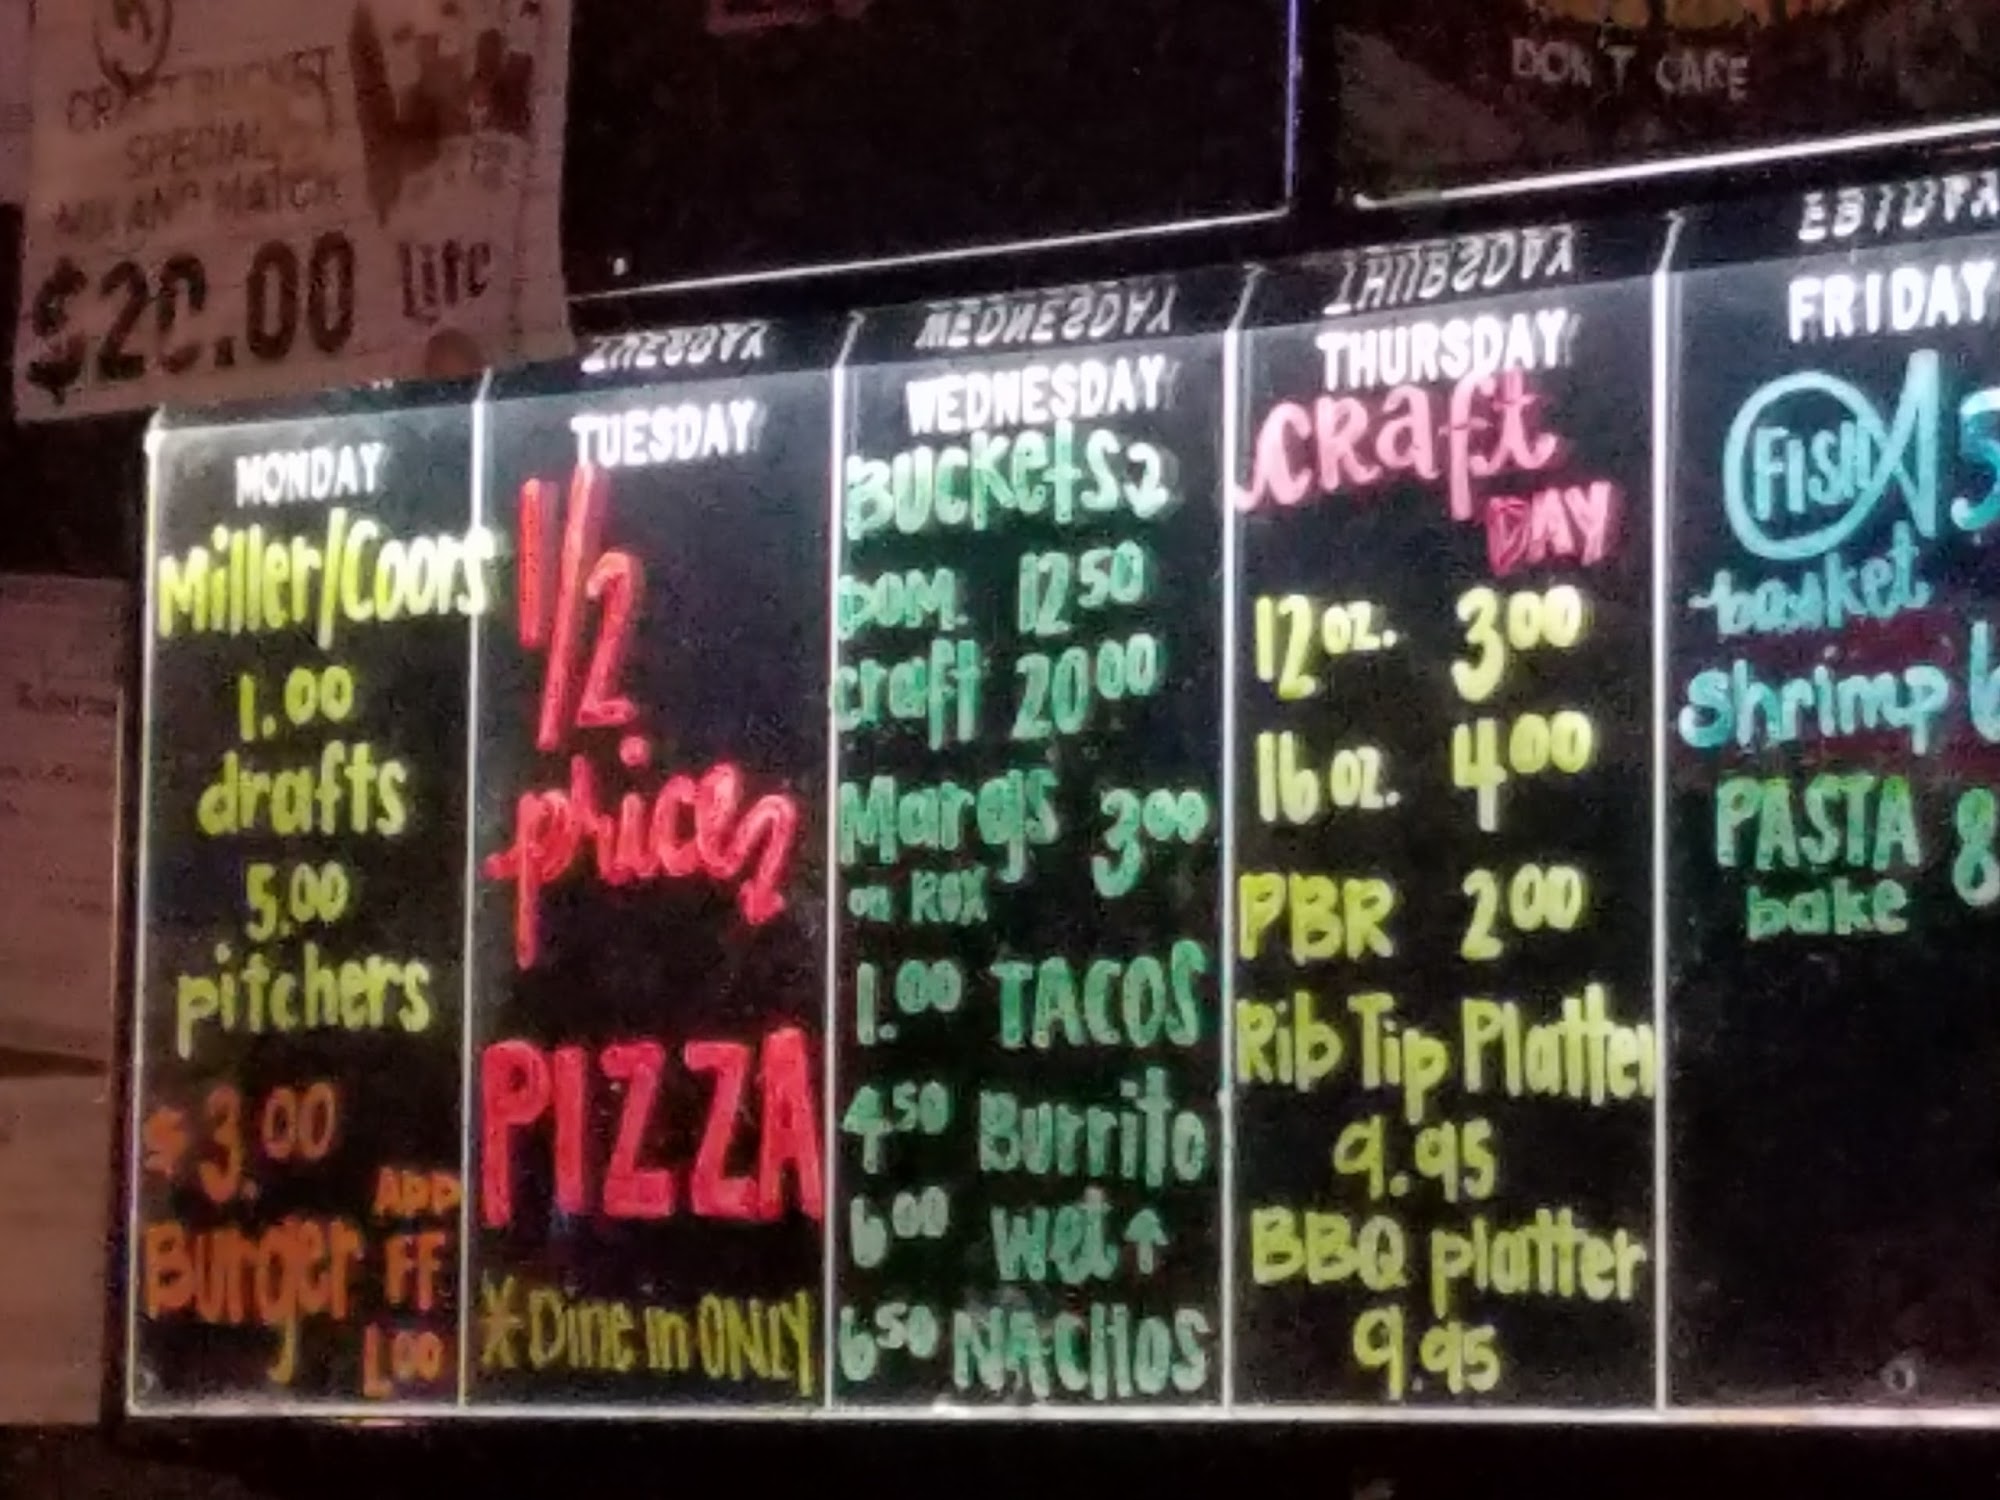 SPECIAL
$20.00 Lite
DON'T CARE
MONDAY
Miller/Coors
1.00
drafts
5.00
pitchers
$3.00
Burger
ADD
FF
1.00
TUESDAY
1/2
price
PIZZA
*Dine in ONLY
WEDNESDAY
Buckets
DOM. 12 50
craft 20 00
Margs 3 00
on ROX
1.00 TACOS
4 50 Burrito
6 00 Wet ↑
6 50 NACHOS
THURSDAY
CRaft
DAY
12 oz. 3 00
16 oz. 4 00
PBR 2 00
Rib Tip Platter
9.95
BBQ platter
9.95
FRIDAY
FISH
basket
Shrimp
PASTA 8
bake